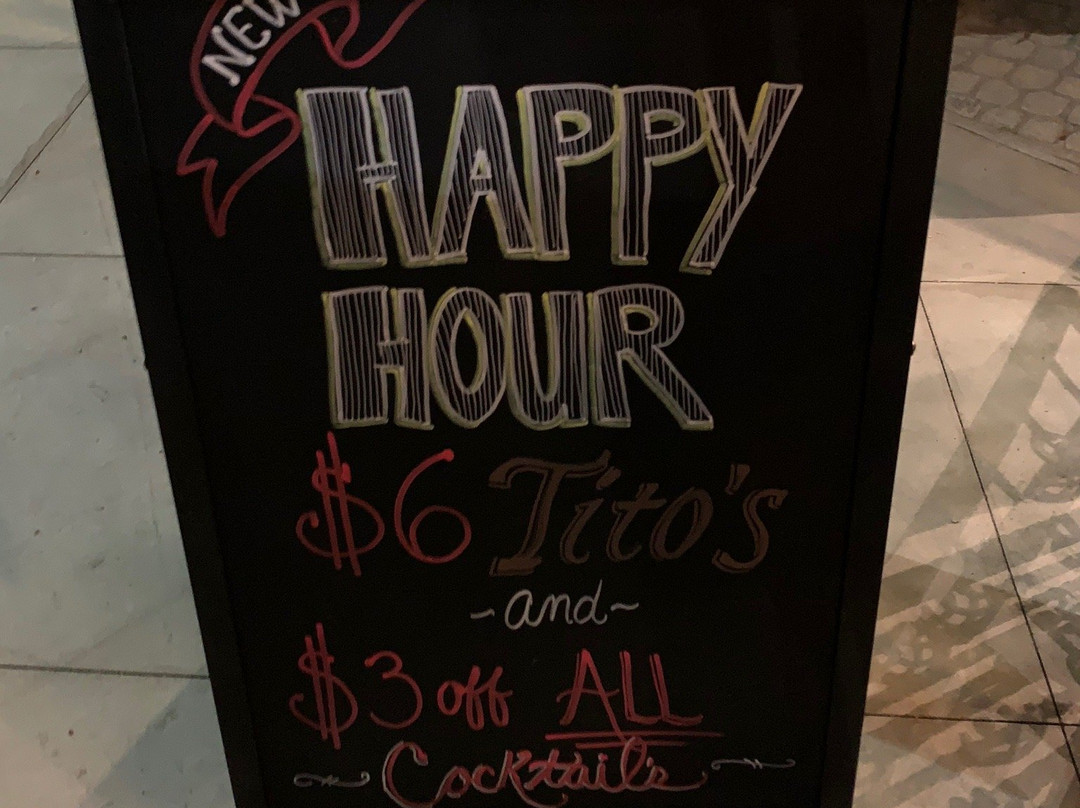 NEW
HAPPY
HOUR
$6 Tito's
~and~
$3 off ALL
Cocktails